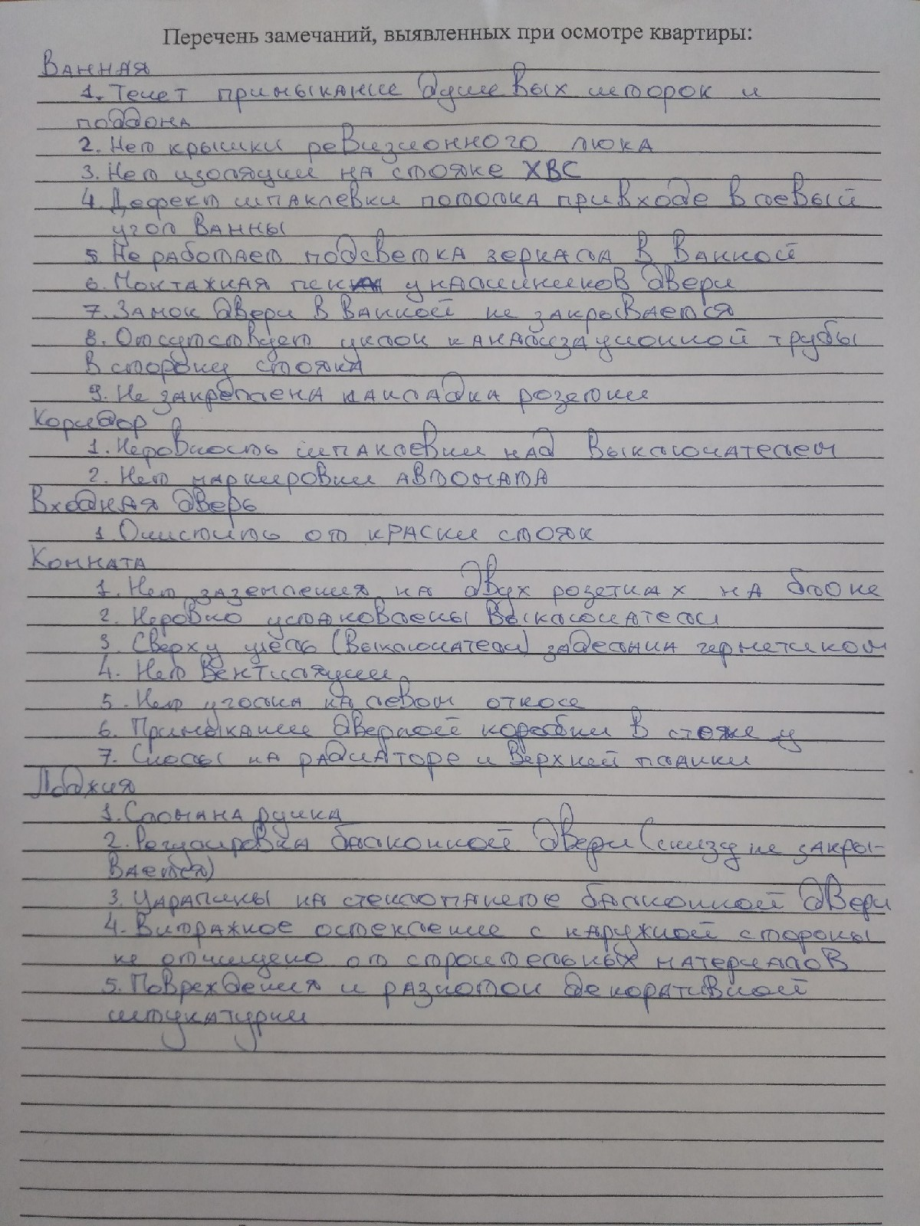 Перечень замечаний, выявленных при осмотре квартиры:
Ванная
1. Течет примыкание душевых шторок и
поддона
2. Нет крышки ревизионного люка
3. Нет изоляции на стояке ХВС
4. Дефект шпаклевки потолка при входе в левый
угол ванны
5. Не работает подсветка зеркала в ванной
6. Монтажная у наличников двери
7. Замок двери в ванной не закрывается
8. Отсутствует уклон канализационной трубы
в сторону стояка
9. Не закреплена накладка розетки
Коридор
1. Неровность шпаклевки над выключателем
2. Нет маркировки автомата
Входная дверь
1. Очистить от краски стояк
Комната
1. Нет заземления на двух розетках на блоке
2. Неровно установлены выключатели
3. Сверху (выключатели) заделаны герметиком
4. Нет вентиляции
5. Нет уголка на левом откосе
6. Примыкание дверной коробки в
7. Сколы на радиаторе и верхней планки
Лоджия
1. Сломана ручка
2. Регулировка балконной двери (снизу не закры-
вается)
3. Царапины на стеклопакете балконной двери
4. Витражное остекление с наружной стороны
не отчищено от строительных материалов
5. Повреждения и разнотон декоративной
штукатурки